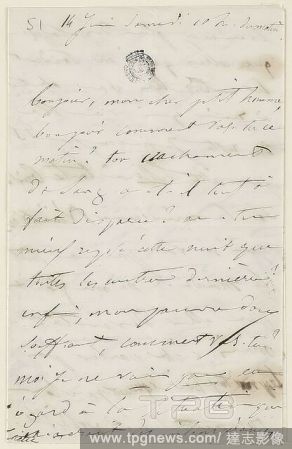 51 14 Juin Samedi 10 h. du matin
Bonjour, mon cher petit homme,
bonjour comment vas-tu ce
matin? ton crachement
de sang a-t-il tout à
fait disparu? as-tu
mieux reposé cette nuit que
toutes les autres dernières?
enfin, mon pauvre doux
souffrant, comment vas-tu?
moi je ne vais pas
égard à la
TPG
www.tpgnews.com / 達志影像